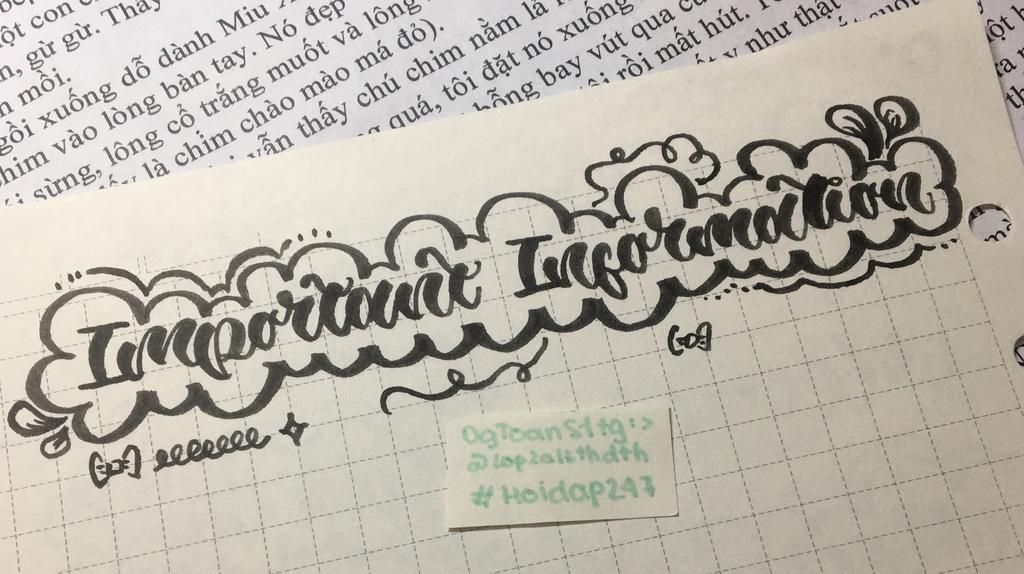 ột con c
n, gừ gừ. Thấy
n mồi.
gồi xuống dỗ dành Miu
him vào lòng bàn tay. Nó đẹp
i sừng, lông cổ trắng muốt và lông
là chim chào mào má đỏ).
vẫn thấy chú chim nằm là
quá, tôi đặt nó xuống
bỗng bay vút qua cử
rồi mất hút. T
như thật
Important Information
OgToanSltg:>
#Hoidap247